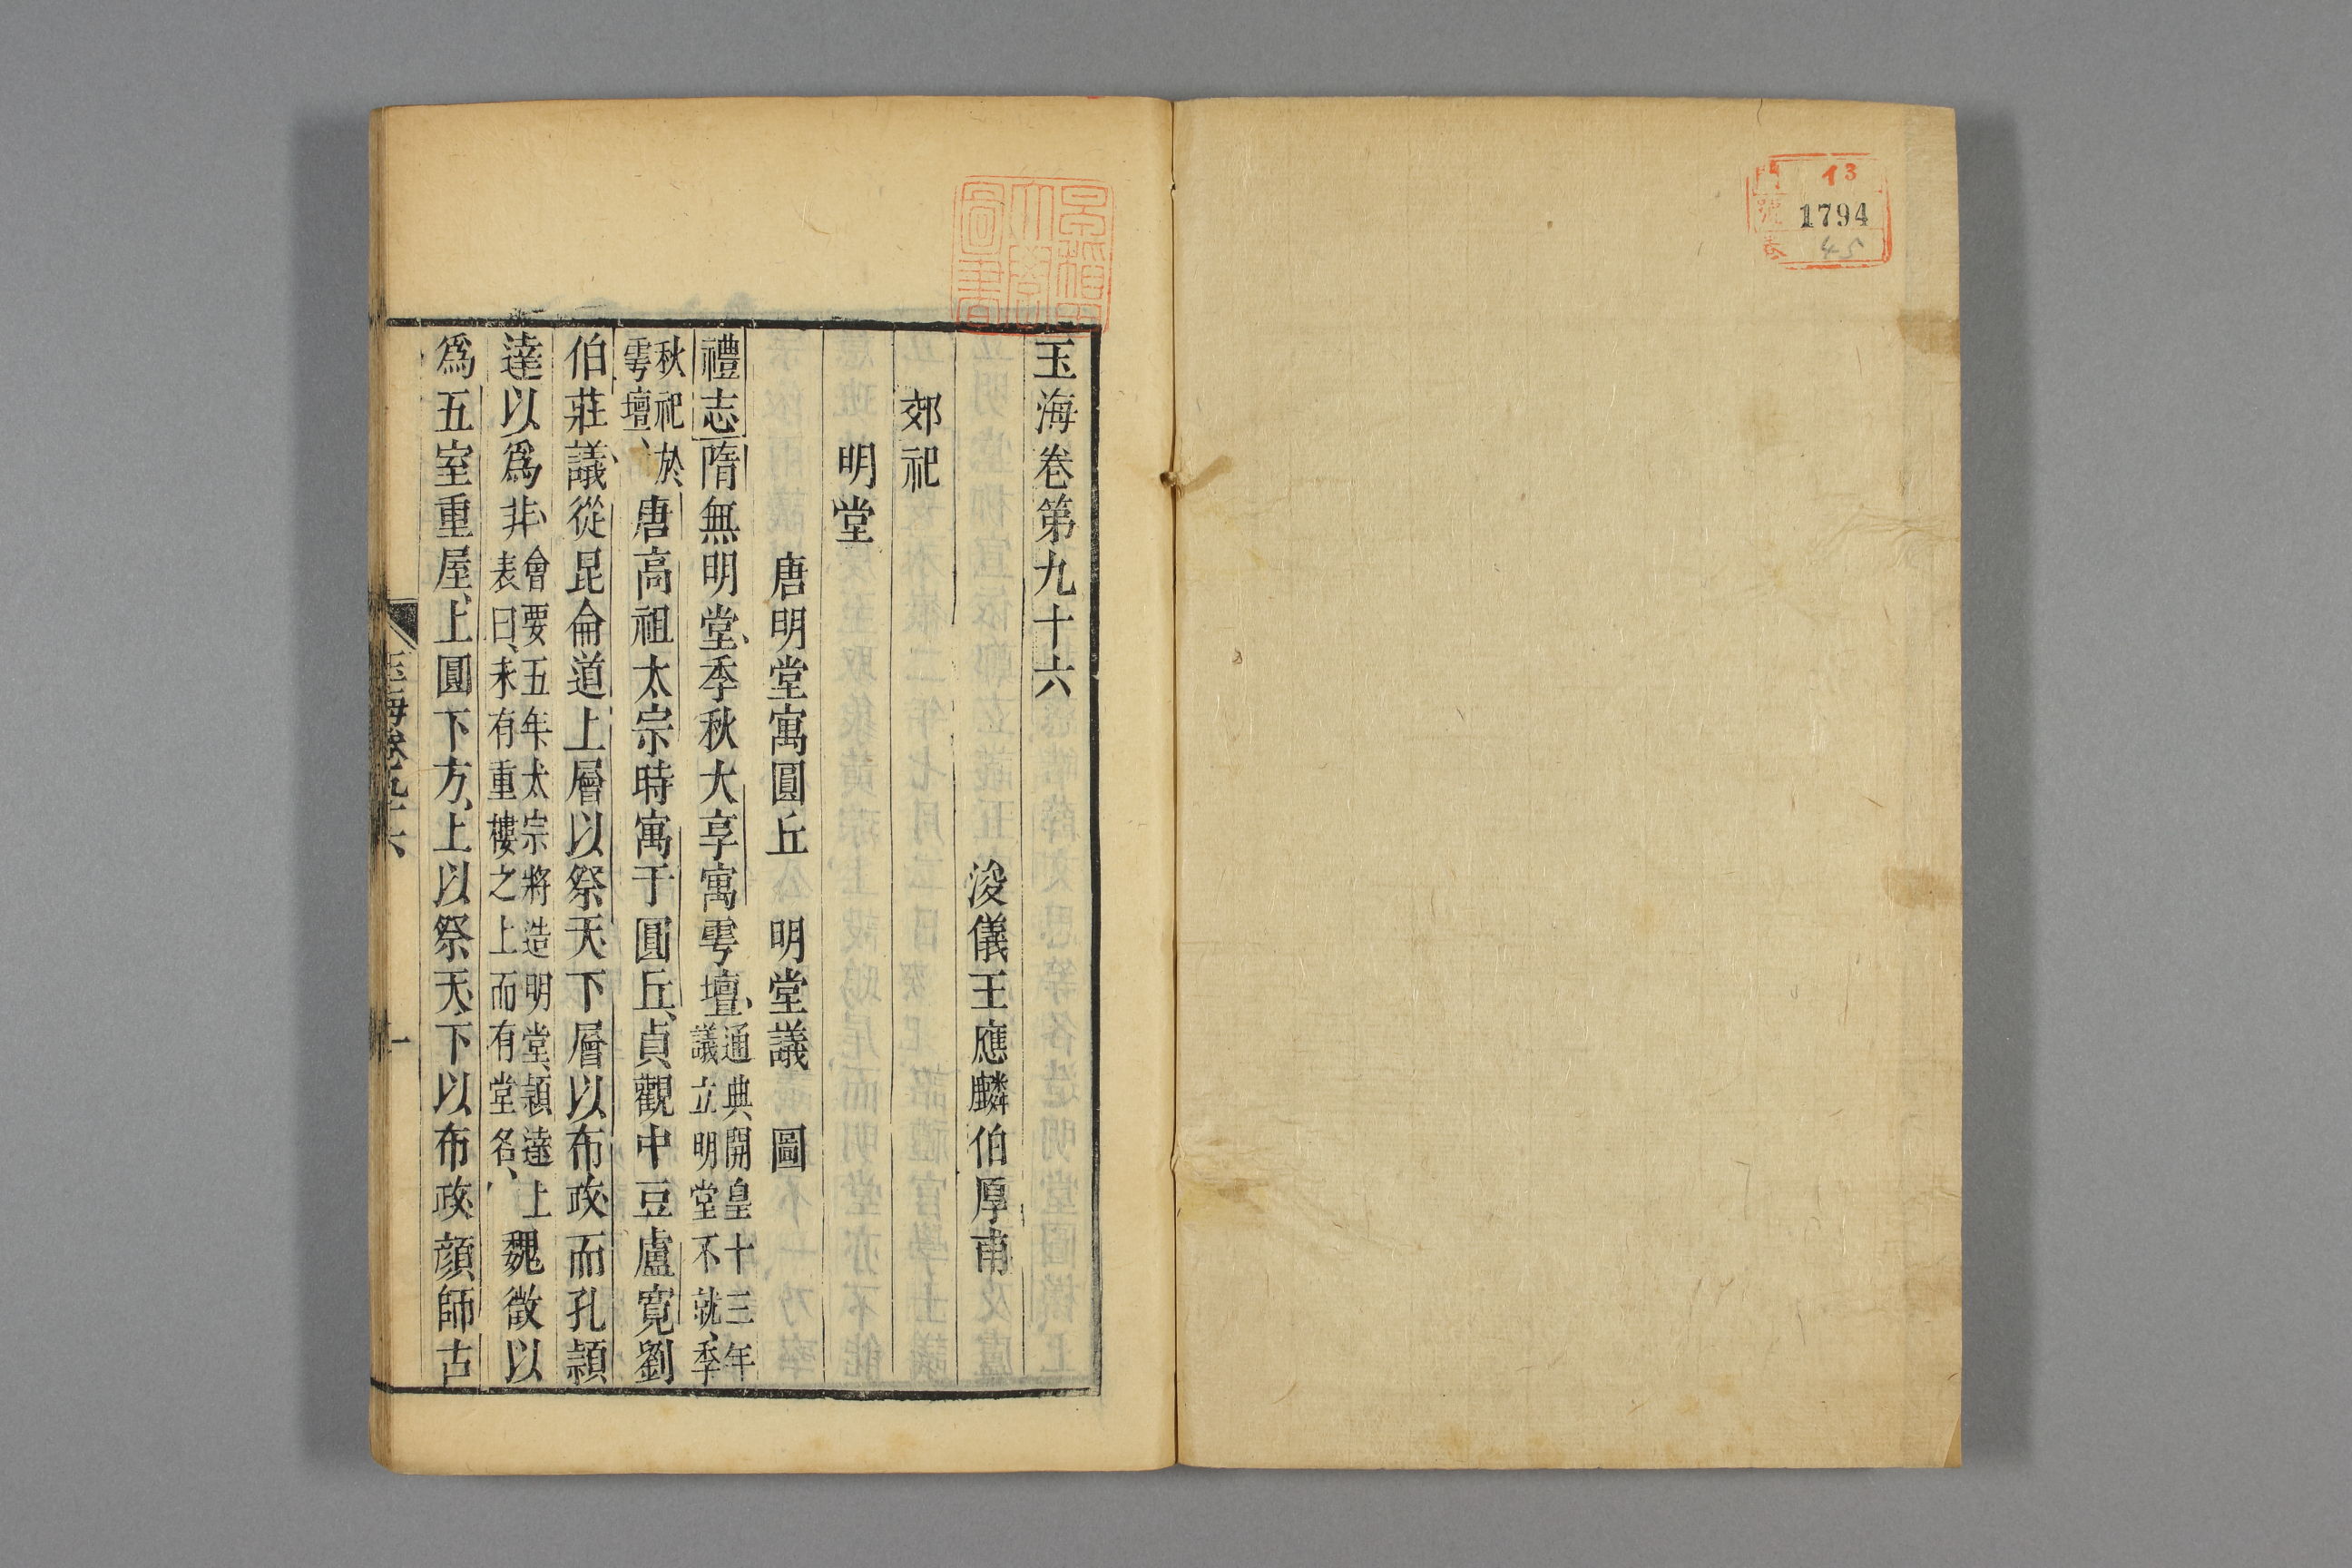 門 13
號 1794
卷 45
早稻田
大學
圖書
玉海卷第九十六
浚儀王應麟伯厚甫
郊祀
明堂
唐明堂寓圓丘 明堂議 圖
禮志隋無明堂、季秋大享寓雩壇、通典開皇十三年
議立明堂不就、季
秋祀於
雩壇、唐高祖太宗時寓于圓丘、貞觀中豆盧寬劉
伯莊議、從昆侖道上層以祭天、下層以布政、而孔穎
達以爲非、會要五年、太宗將造明堂、穎達上
表曰、未有重樓之上而有堂名、魏徵以
爲五室重屋、上圓下方、上以祭天、下以布政、顏師古
玉海卷九十六
一